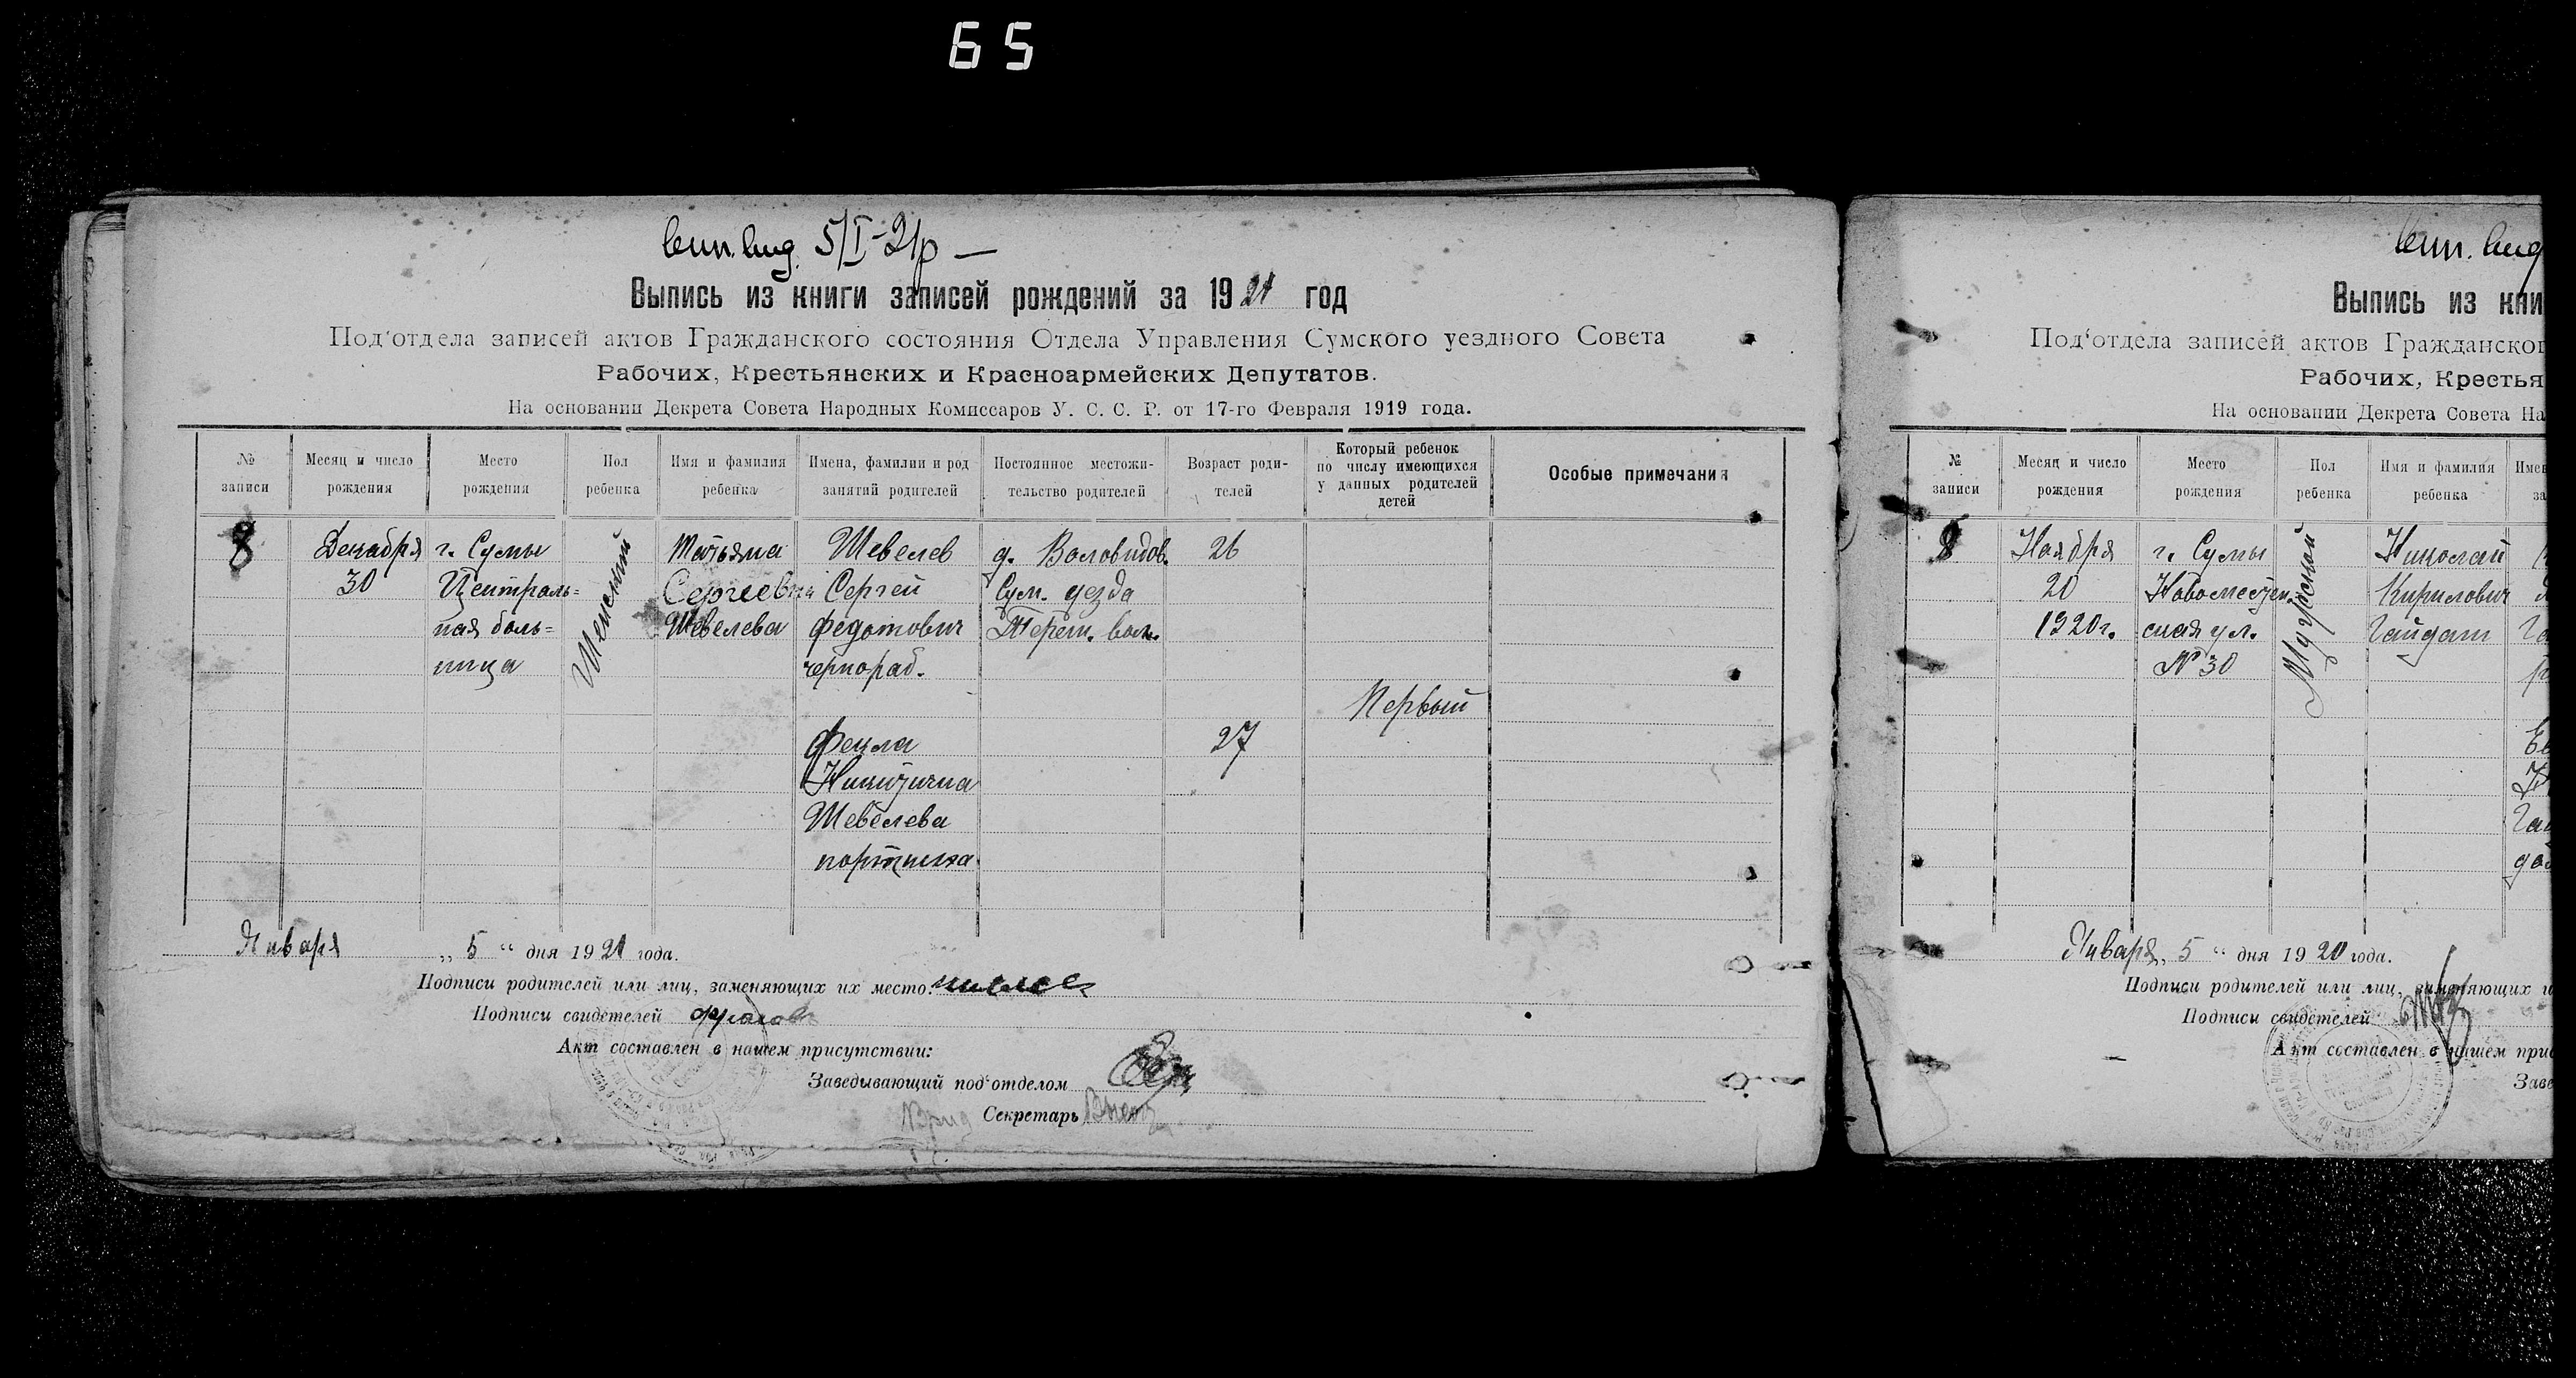 65
5/I-21р —
Выпись из книги записей рождений за 1921 год
Под‘отдела записей актов Гражданского состояния Отдела Управления Сумского уездного Совета
Рабочих, Крестьянских и Красноармейских Депутатов.
На основании Декрета Совета Народных Комиссаров У. С. С. Р. от 17-го Февраля 1919 года.
№ записи
Месяц и число рождения
Место рождения
Пол ребенка
Имя и фамилия ребенка
Имена, фамилии и род занятий родителей
Постоянное местожительство родителей
Возраст родителей
Который ребенок по числу имеющихся у данных родителей детей
Особые примечания
8
Декабря
30
г. Сумы
Централь=
ная боль=
ница
Женский
Татьяна
Сергеевна
Шевелева
Шевелев
Сергей
Федотович
чернораб.
д. Воловидов.
Сум. уезда
Терем. вол.
26
Первый
Фекла
Никитична
Шевелева
портниха
27
Января „ 5 “ дня 1921 года.
Подписи родителей или лиц, заменяющих их место:
Подписи свидетелей
Акт составлен в нашем присутствии:
Заведывающий под‘отделом
Врид Секретарь
Выпись из кни
Под‘отдела записей актов Гражданског
Рабочих, Крестья
На основании Декрета Совета На
№ записи
Месяц и число рождения
Место рождения
Пол ребенка
Имя и фамилия ребенка
Имен
за
Ноября
20
1920г.
г. Сумы
Новоместен.
ская ул.
№ 30
Мужской
Николай
Кирилович
Гайдаш
Января „ 5 “ дня 1920 года.
Подписи родителей или лиц, заменяющих и
Подписи свидетелей
Акт составлен в нашем прис
Заве